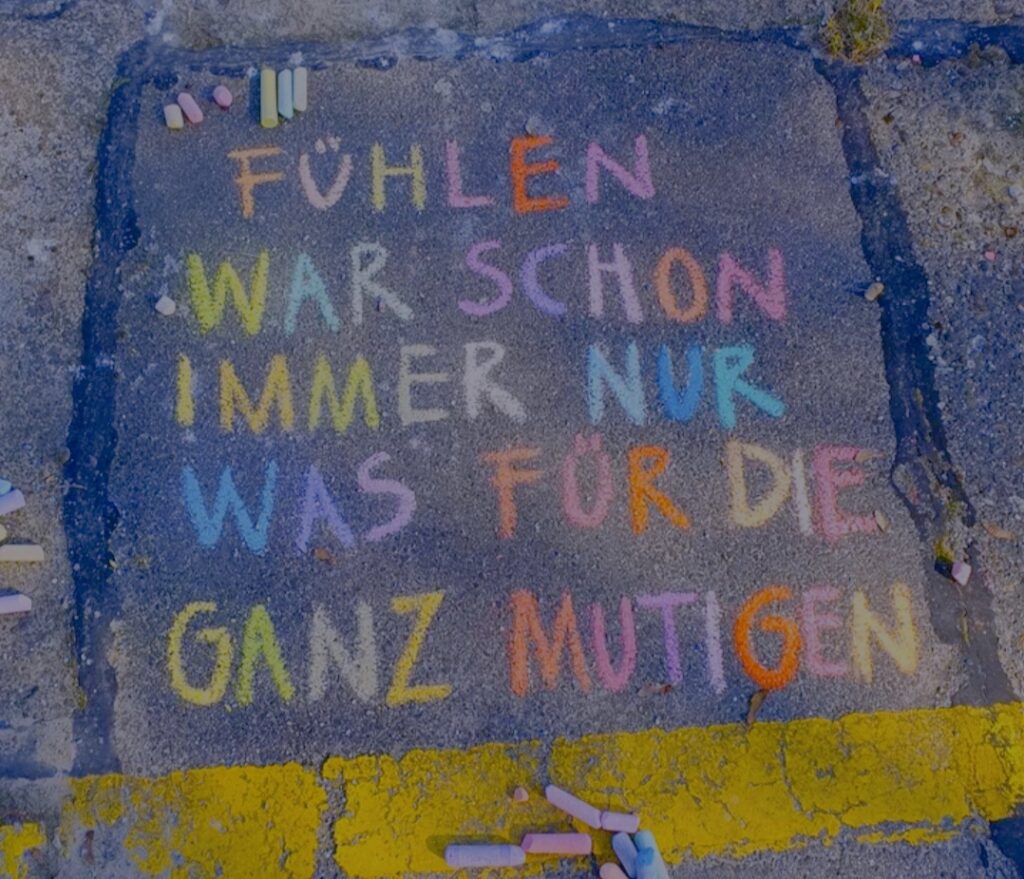 FÜHLEN
WAR SCHON
IMMER NUR
WAS FÜR DIE
GANZ MUTIGEN